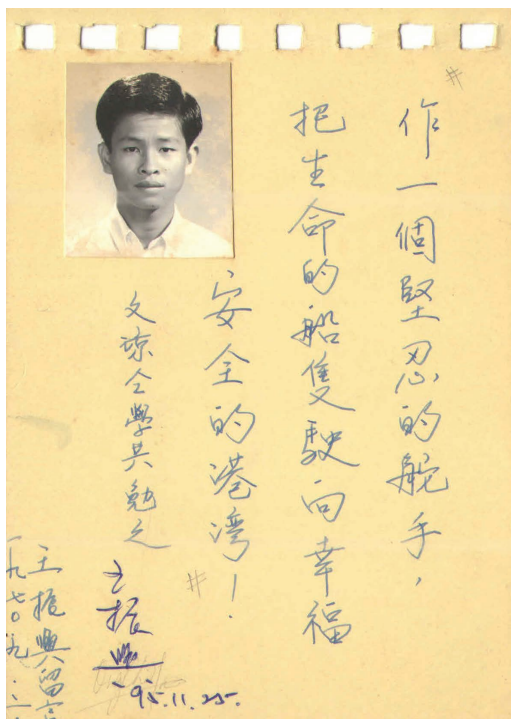 作一個堅忍的舵手，
把生命的船隻駛向幸福
安全的港灣！
文諒仝學共勉之
王振興
95.11.25.
王振興留言
一九七〇.九.